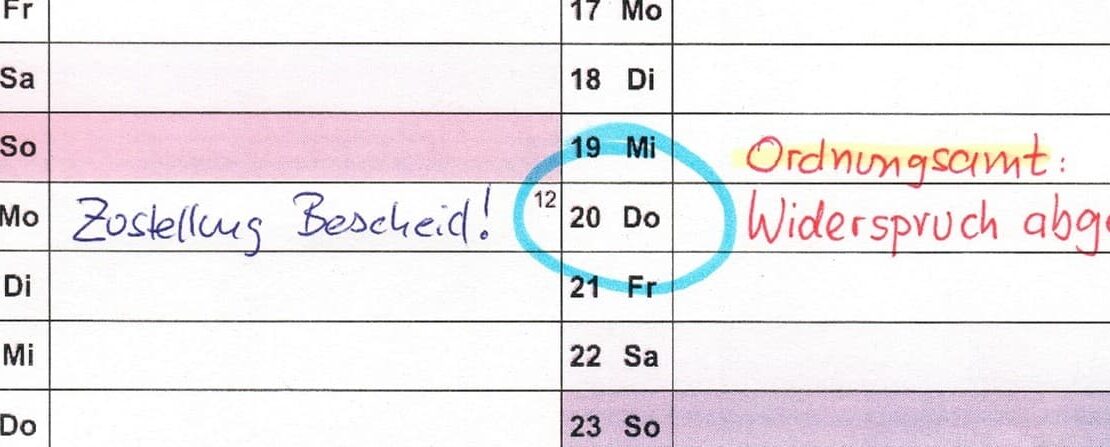 Fr 17 Mo
Sa 18 Di
So 19 Mi Ordnungsamt:
Mo Zustellung Bescheid! 12 20 Do Widerspruch abg
Di 21 Fr
Mi 22 Sa
Do 23 So